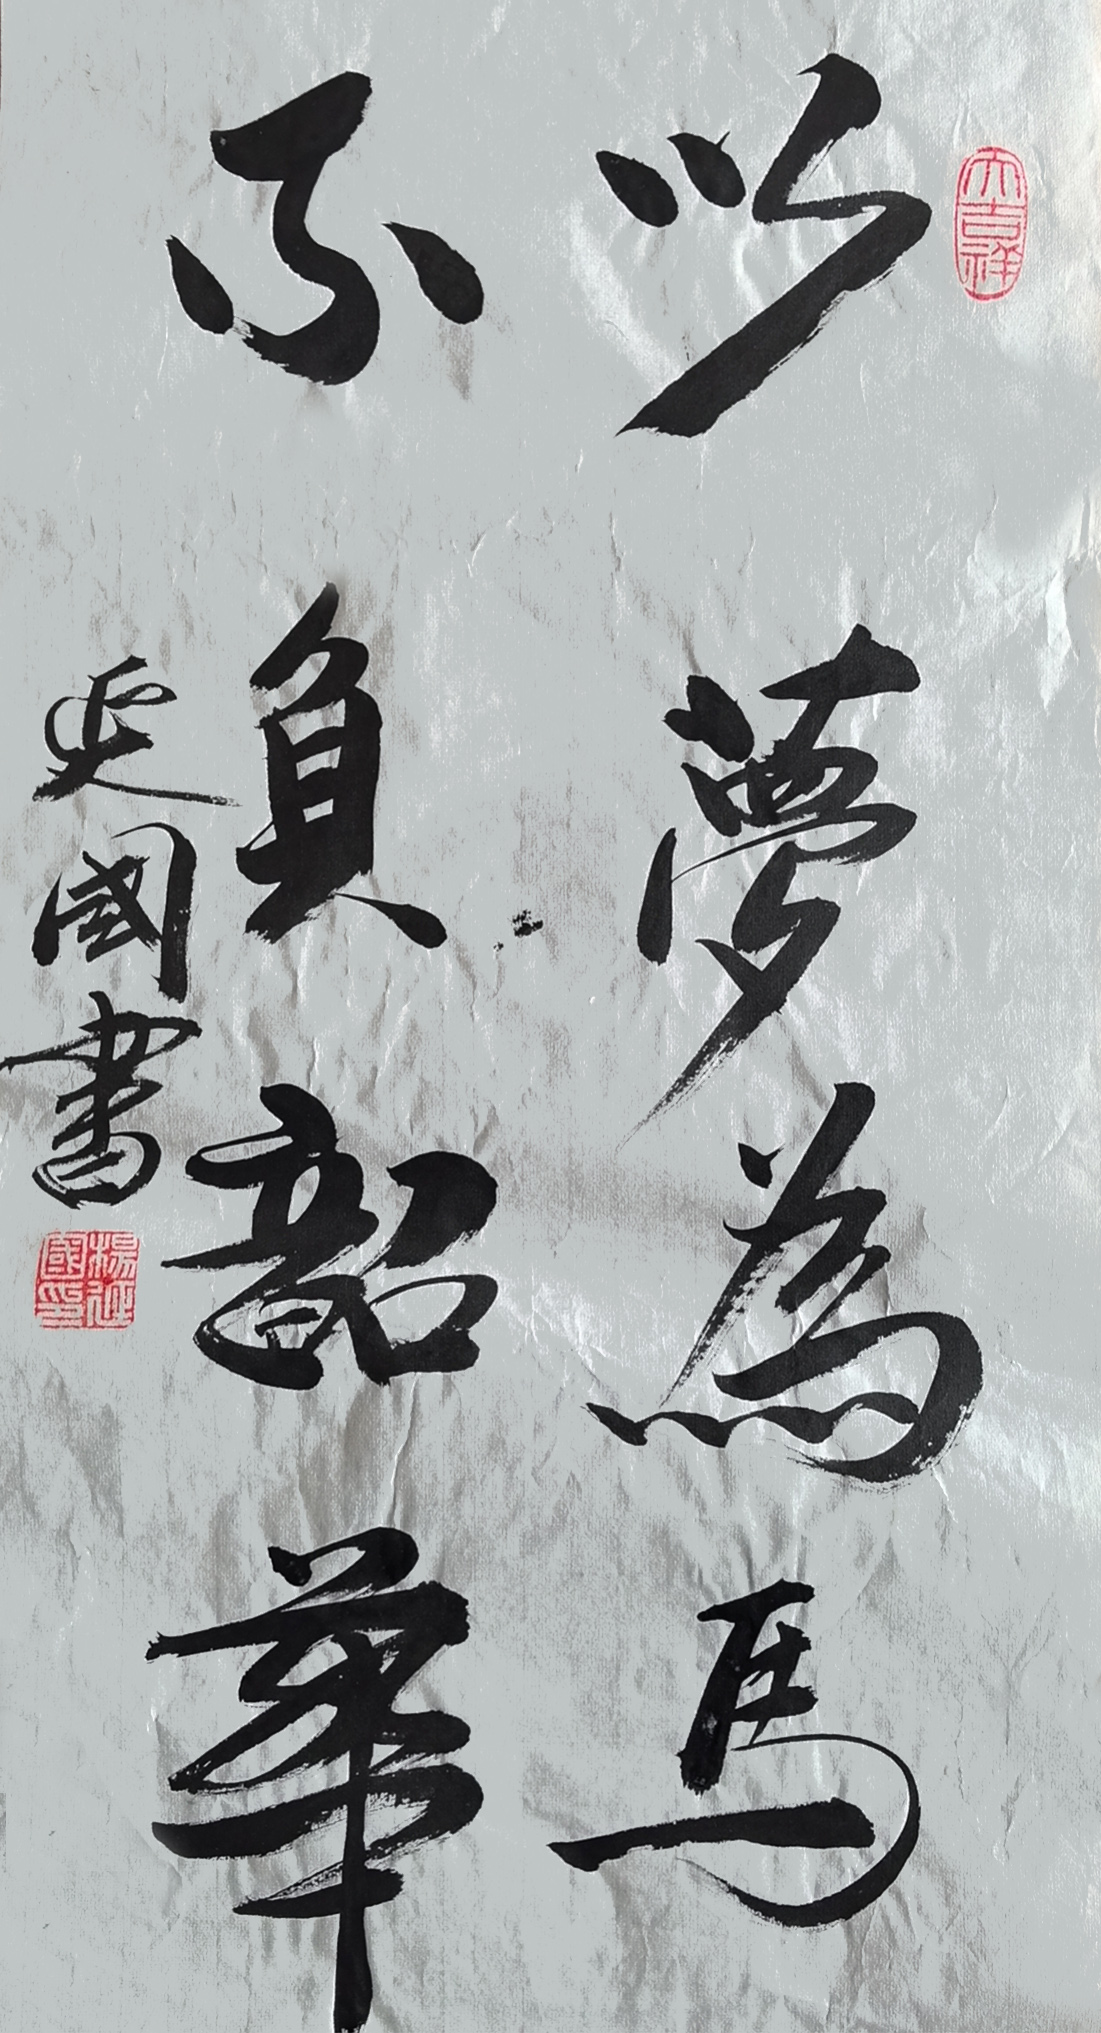 大吉祥
以夢為馬
不負韶華
延國書
楊延國印